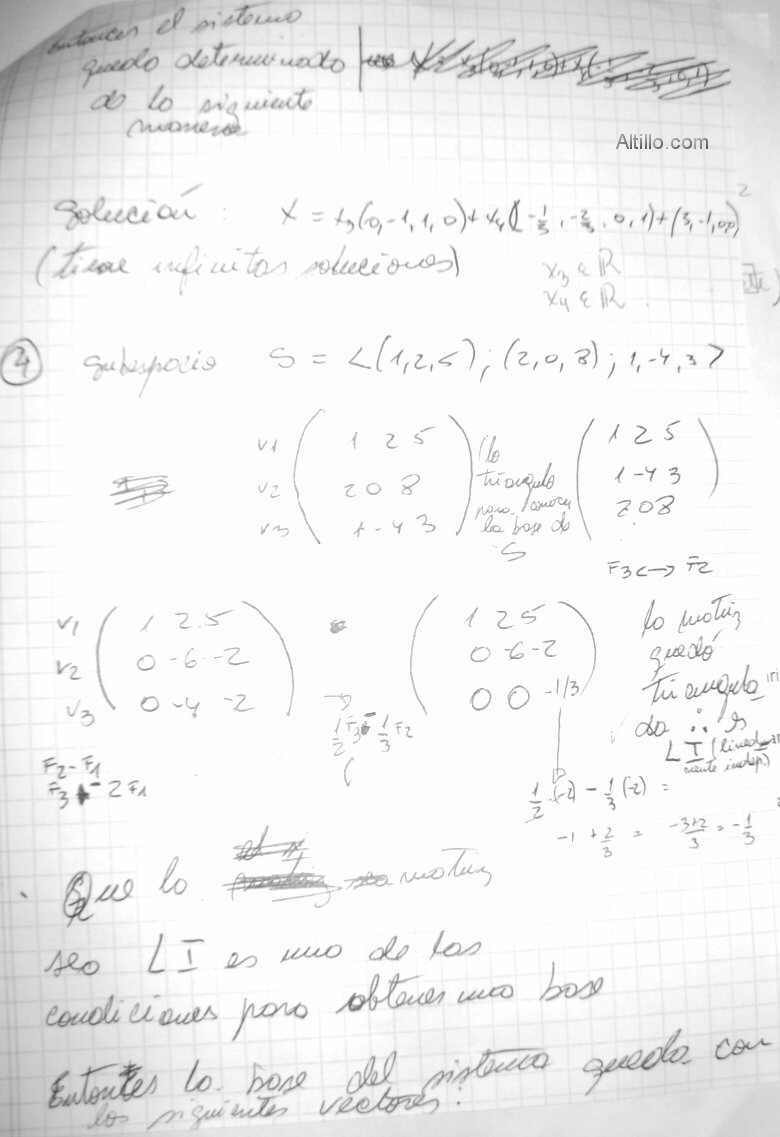 Entonces el sistema
quedo determinado
de la siguiente
manera
Altillo.com
Solución : X = x3(0,-1,1,0)+x4(-1/3,-2/3,0,1)+(3,-1,0,0)
(tiene infinitas soluciones)
x3 ∈ ℝ
x4 ∈ ℝ
4 Subespacio S = <(1,2,5);(2,0,8);1,-4,3>
v1 1 2 5
v2 2 0 8
v3 1 -4 3
(lo
triangulo
para conocer
la base de
S
1 2 5
1 -4 3
2 0 8
F3 <-> F2
v1 1 2 5
v2 0 -6 -2
v3 0 -4 -2
F2 - F1
F3 - 2F1
1/2 F3 - 1/3 F2
1 2 5
0 -6 -2
0 0 -1/3
la matriz
quedó
triangula
da ∴ es
LI (lineal
mente indep.)
1/2 (-2) - 1/3 (-2) =
-1 + 2/3 = -3+2/3 = -1/3
Que la matriz
sea LI es una de las
condiciones para obtener una base
Entonces la base del sistema queda con
los siguientes vectores: